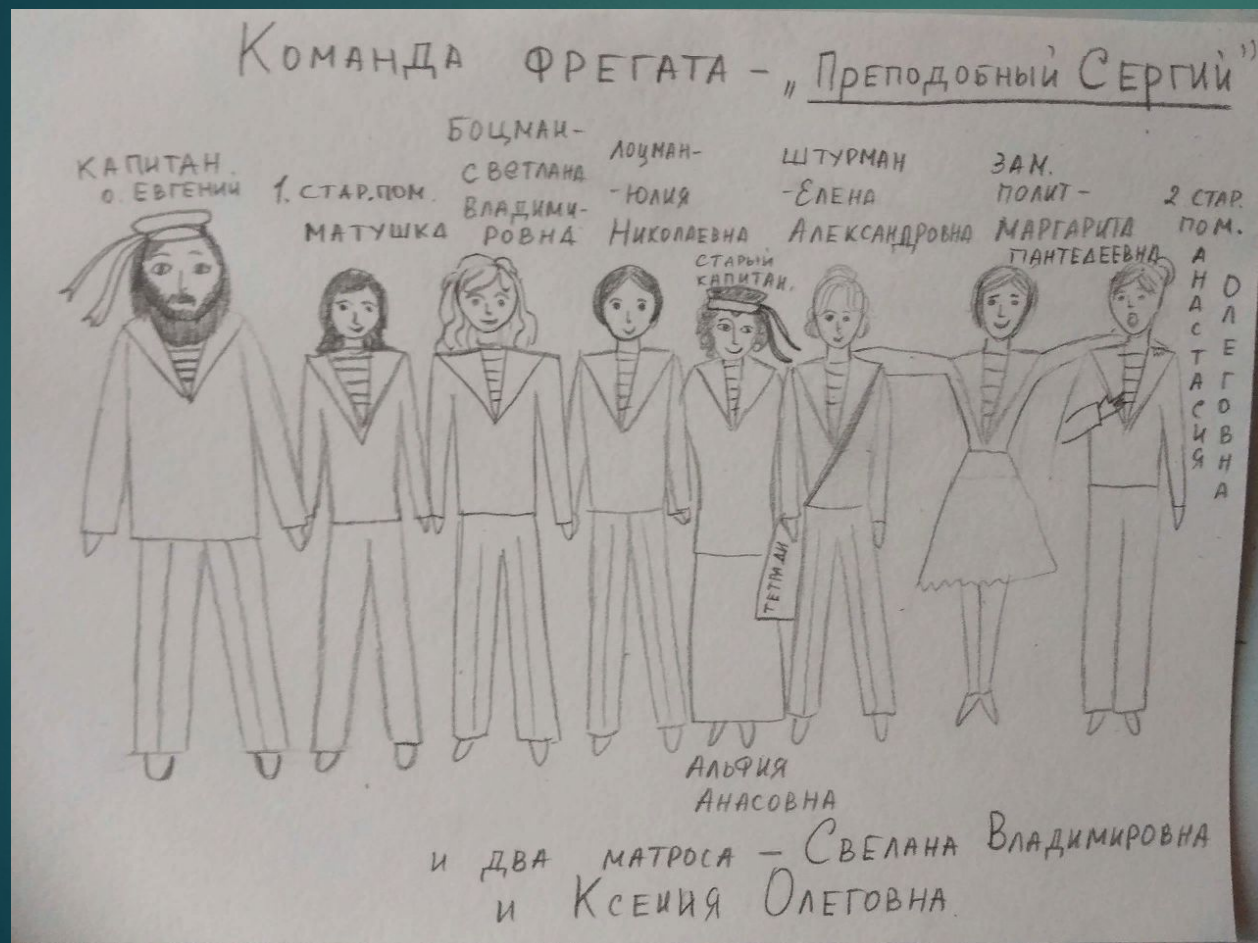 КОМАНДА ФРЕГАТА - „ПРЕПОДОБНЫЙ СЕРГИЙ"
КАПИТАН.
о. ЕВГЕНИЙ
1. СТАР. ПОМ.
МАТУШКА
БОЦМАН-
СВЕТЛАНА
ВЛАДИМИ-
РОВНА
ЛОЦМАН-
-ЮЛИЯ
НИКОЛАЕВНА
СТАРЫЙ
КАПИТАН.
ШТУРМАН
-ЕЛЕНА
АЛЕКСАНДРОВНА
ЗАМ.
ПОЛИТ-
МАРГАРИТА
ПАНТЕЛЕЕВНА
2 СТАР.
ПОМ.
АНАСТАСИЯ
ОЛЕГОВНА
ТЕТРАДИ
АЛЬФИЯ
АНАСОВНА
И ДВА МАТРОСА - СВЕЛАНА ВЛАДИМИРОВНА
И КСЕНИЯ ОЛЕГОВНА.